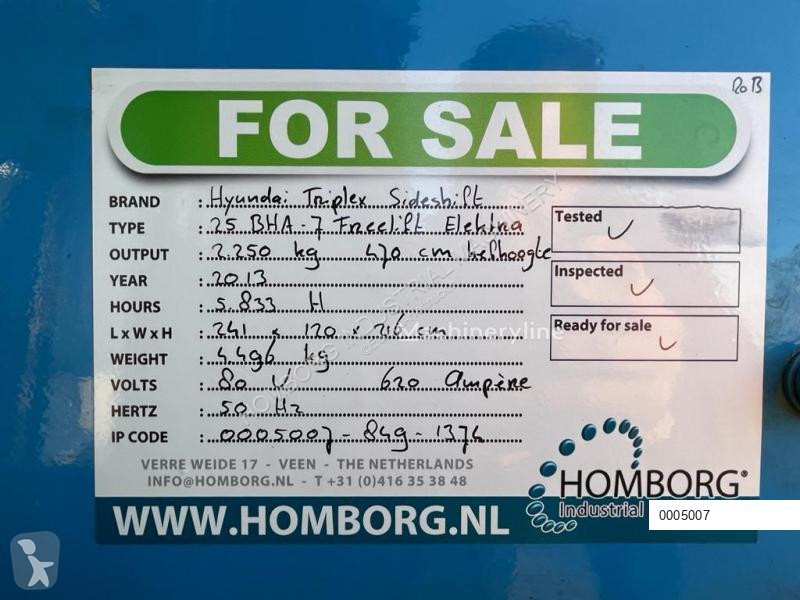 RoB
FOR SALE
BRAND : Hyundai Triplex Sideshift
TYPE : 25 BHA-7 Freelift Elektra
OUTPUT : 2.250 kg 470 cm hefhoogte
YEAR : 2013
HOURS : 5.833 H
L x W x H : 241 x 120 x 216 cm
WEIGHT : 4.496 kg
VOLTS : 80 V 620 Ampère
HERTZ : 50 Hz
IP CODE : 0005007-849-1374
Tested
Inspected
Ready for sale
Machineryline
VERRE WEIDE 17 - VEEN - THE NETHERLANDS
INFO@HOMBORG.NL - T +31 (0)416 35 38 48
WWW.HOMBORG.NL
HOMBORG®
Industrial
0005007